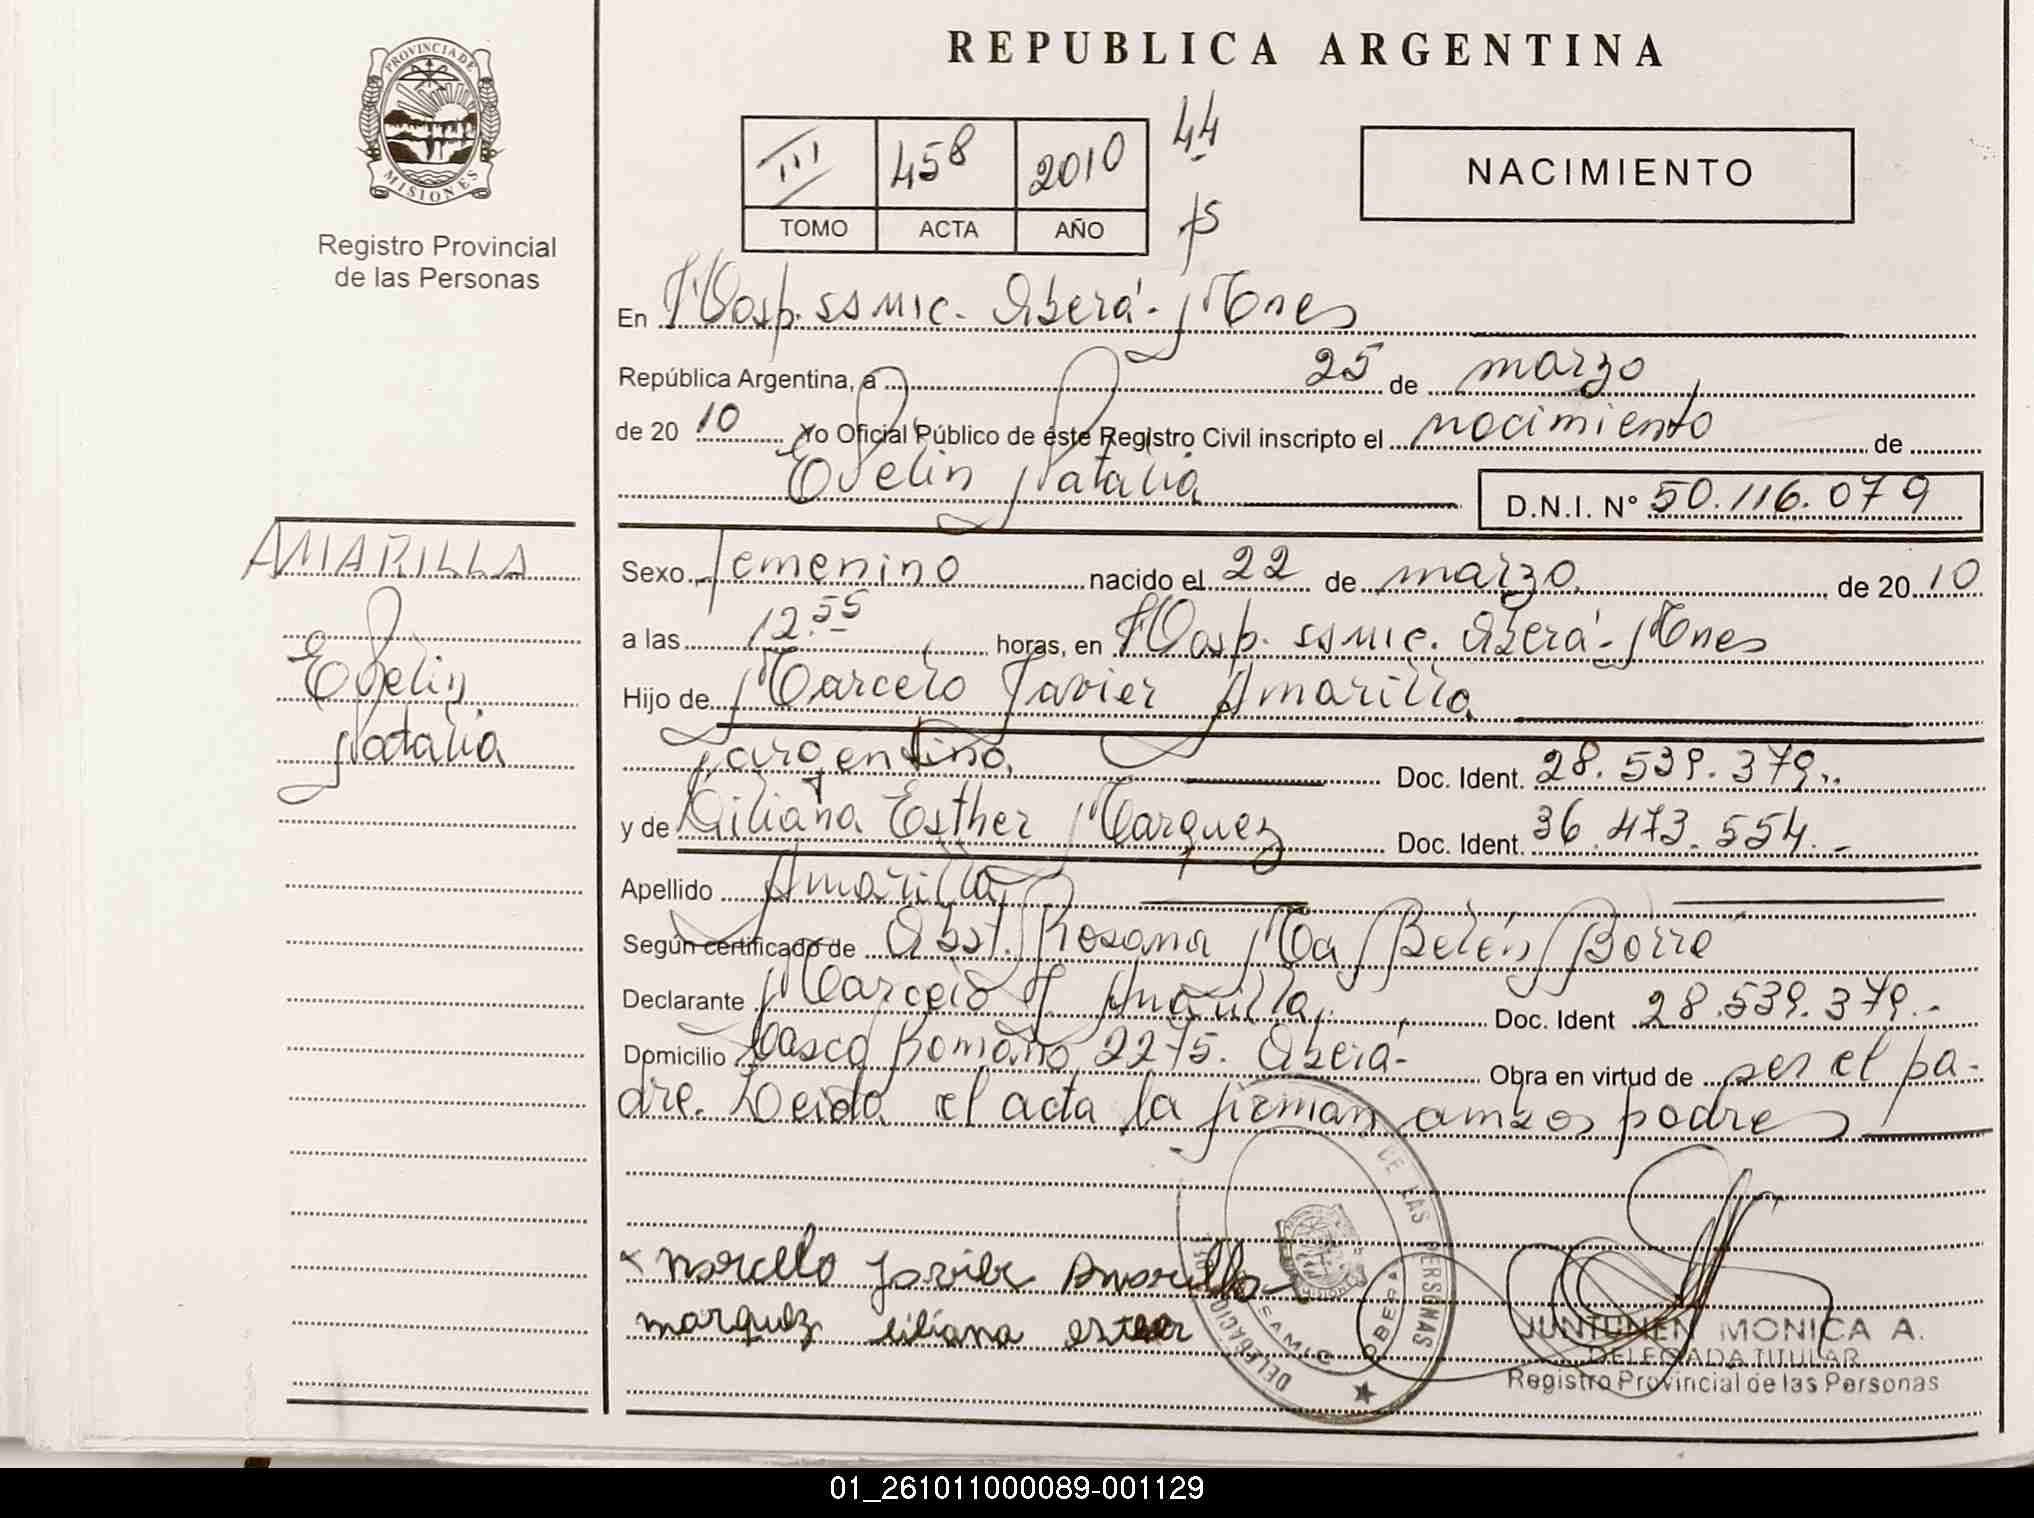 REPUBLICA ARGENTINA
PROVINCIA DE MISIONES
Registro Provincial
de las Personas
III 458 2010 44
TOMO ACTA AÑO
NACIMIENTO
En Hosp. SSMIC. Oberá - Mnes
República Argentina, a 25 de marzo
de 20 10 Yo Oficial Público de este Registro Civil inscripto el nacimiento de
Evelin Natalia D.N.I. Nº 50.116.079
AMARILLA
Evelin
Natalia
Sexo femenino nacido el 22 de marzo de 20 10
a las 12.55 horas, en Hosp. SSMIC. Oberá - Mnes
Hijo de Marcelo Javier Amarilla
argentino Doc. Ident. 28.539.379.-
y de Liliana Esther Marquez Doc. Ident. 36.473.554.-
Apellido Amarilla
Según certificado de Obst. Rosana Ma Belén Borré
Declarante Marcelo J. Amarilla Doc. Ident 28.539.379.-
Domicilio Romano 2275. Oberá - Obra en virtud de ser el pa-
dre. Leida el acta la firman ambos padres
DELEGACION DE LAS PERSONAS
SAMIC OBERA
Marcelo Javier Amarilla
marquez liliana ester
JUNTUNEN MONICA A.
DELEGADA TITULAR
Registro Provincial de las Personas
01_261011000089-001129